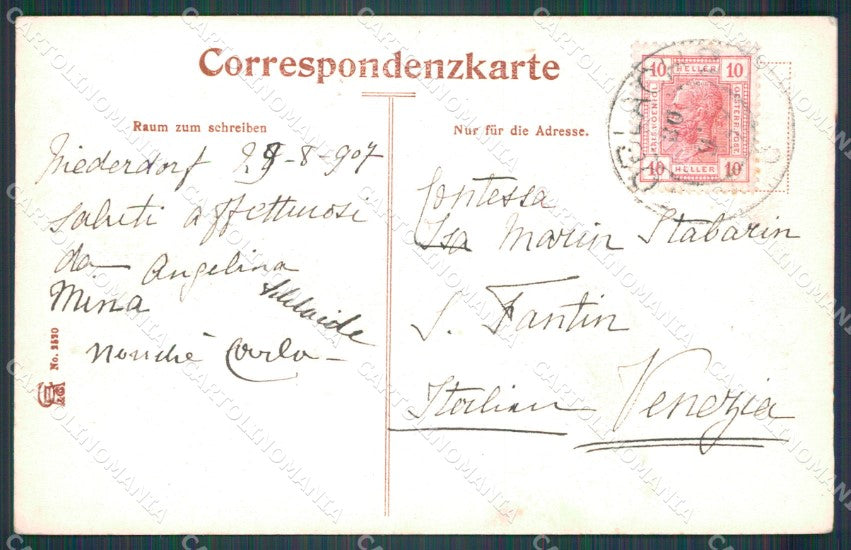 Correspondenzkarte
Raum zum schreiben
Nur für die Adresse.
Niederdorf 29-8-907
Saluti affettuosi
da Angelina
Mina Adelaide
Nonché Carlo
Contessa
Isa Marin Stabarin
S. Fantin
Italien Venezia
No. 2520
10 HELLER 10
KAIS. KOENIGL.
OESTERR. POST
10 HELLER 10
CARTOLINOMANIA